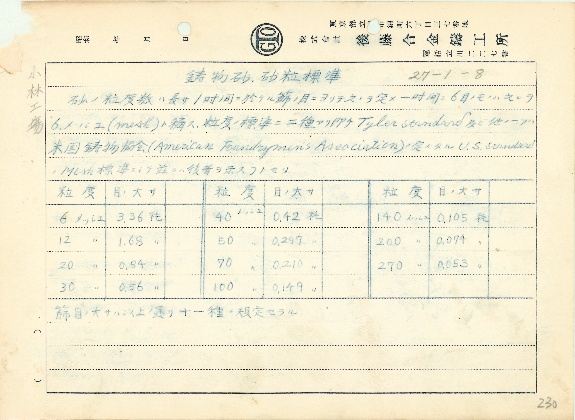 東京都立川市錦町六丁目二七番地
株式会社 後藤合金鑄工所
昭和 年 月 日
小林工場
鋳物砂,砂粒標準 27-1-8
砂ノ粒度数ハ長サ1吋間ニ於ケル篩ノ目
6メッシュ(mesh)ト稱ス,粒度ノ標準ニ二種アリ即チTyler standard及ビ他ノ一ハ
米国鋳物協会(American Foundrymen's Association)ノ定メタルU.S. standard
Mesh標準
粒度 目ノ大サ 粒度 目ノ大サ 粒度 目ノ大サ
6メッシュ 3.36粍 40メッシュ 0.42粍 140メッシュ 0.105粍
12 〃 1.68 〃 50 〃 0.297 〃 200 〃 0.074 〃
20 〃 0.84 〃 70 〃 0.210 〃 270 〃 0.053 〃
30 〃 0.56 〃 100 〃 0.149 〃
篩目ノ大サハ以上ノ通リ十一種ヲ規定セラル
230